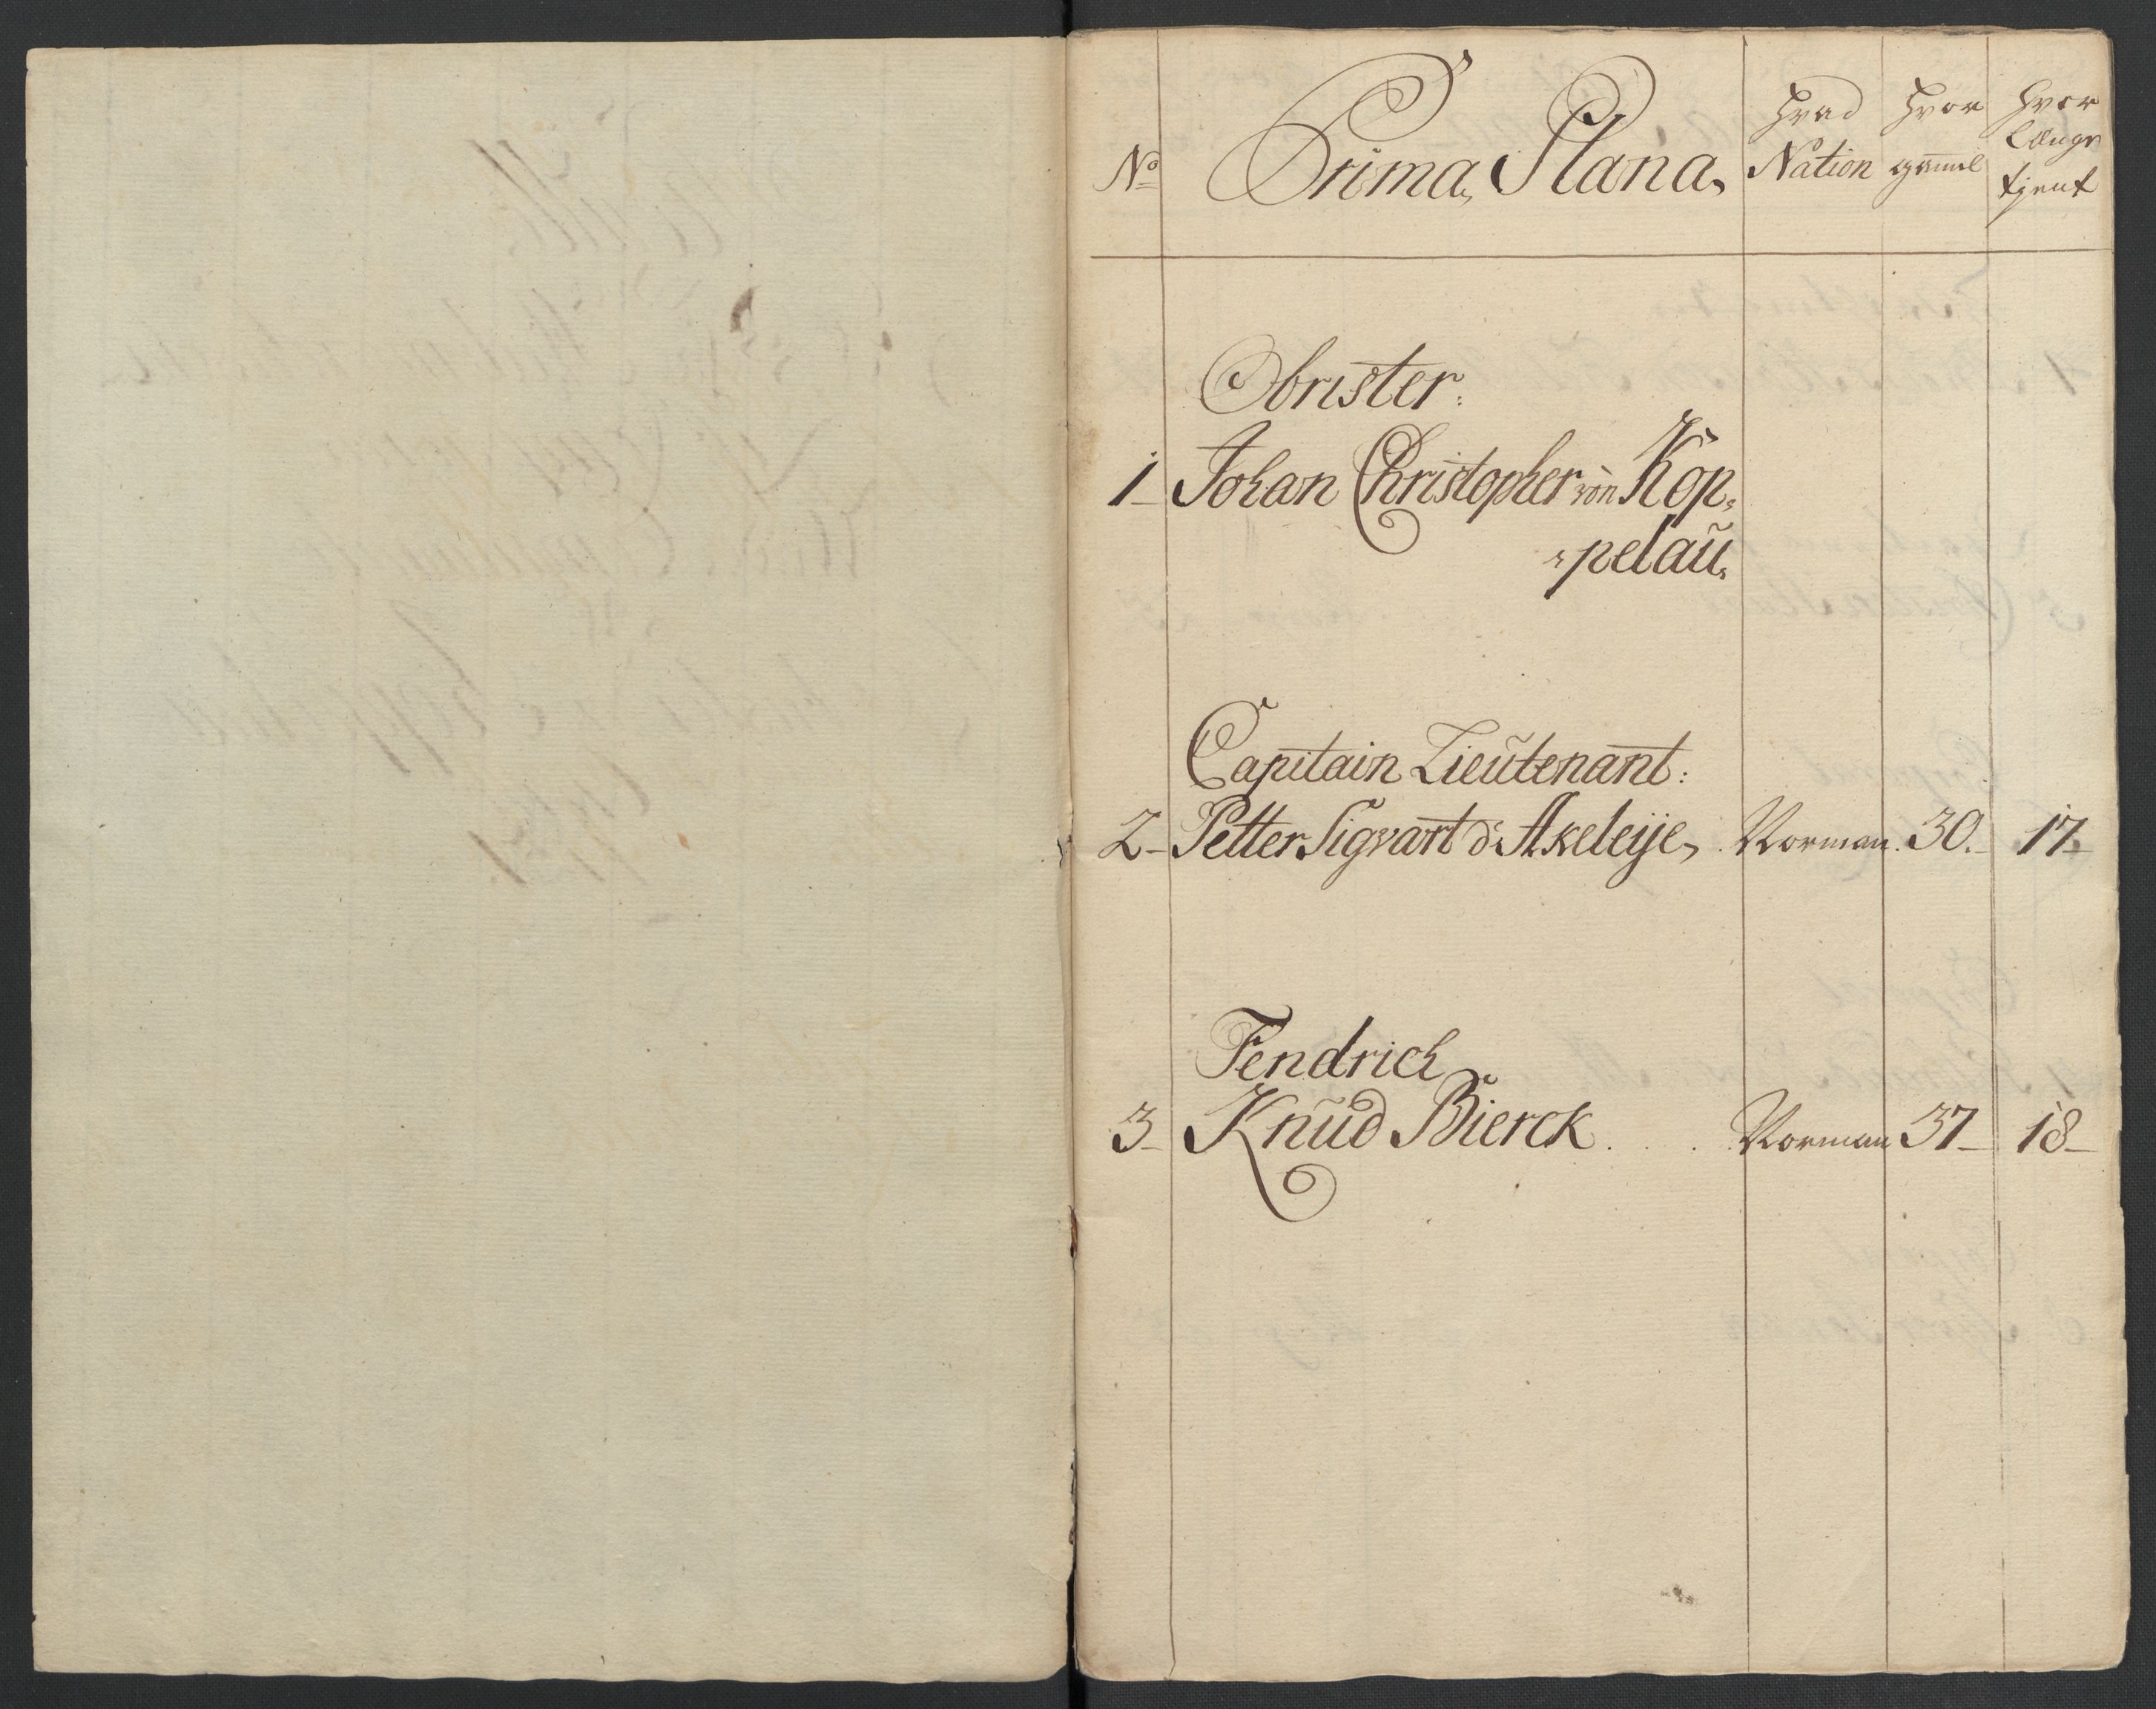 No Prima Plana, Hvad Nation Hvor gam̄el Hvor Længe tient
Obrister:
1 Johan Christopher von Kop=
=pelaŭ,
Capitain Lieŭtenant:
2 Petter Sigvart d'Akeleije, Norman 30. 17
Fendrich
3 Knŭd Bierck . . . Norman 37 18